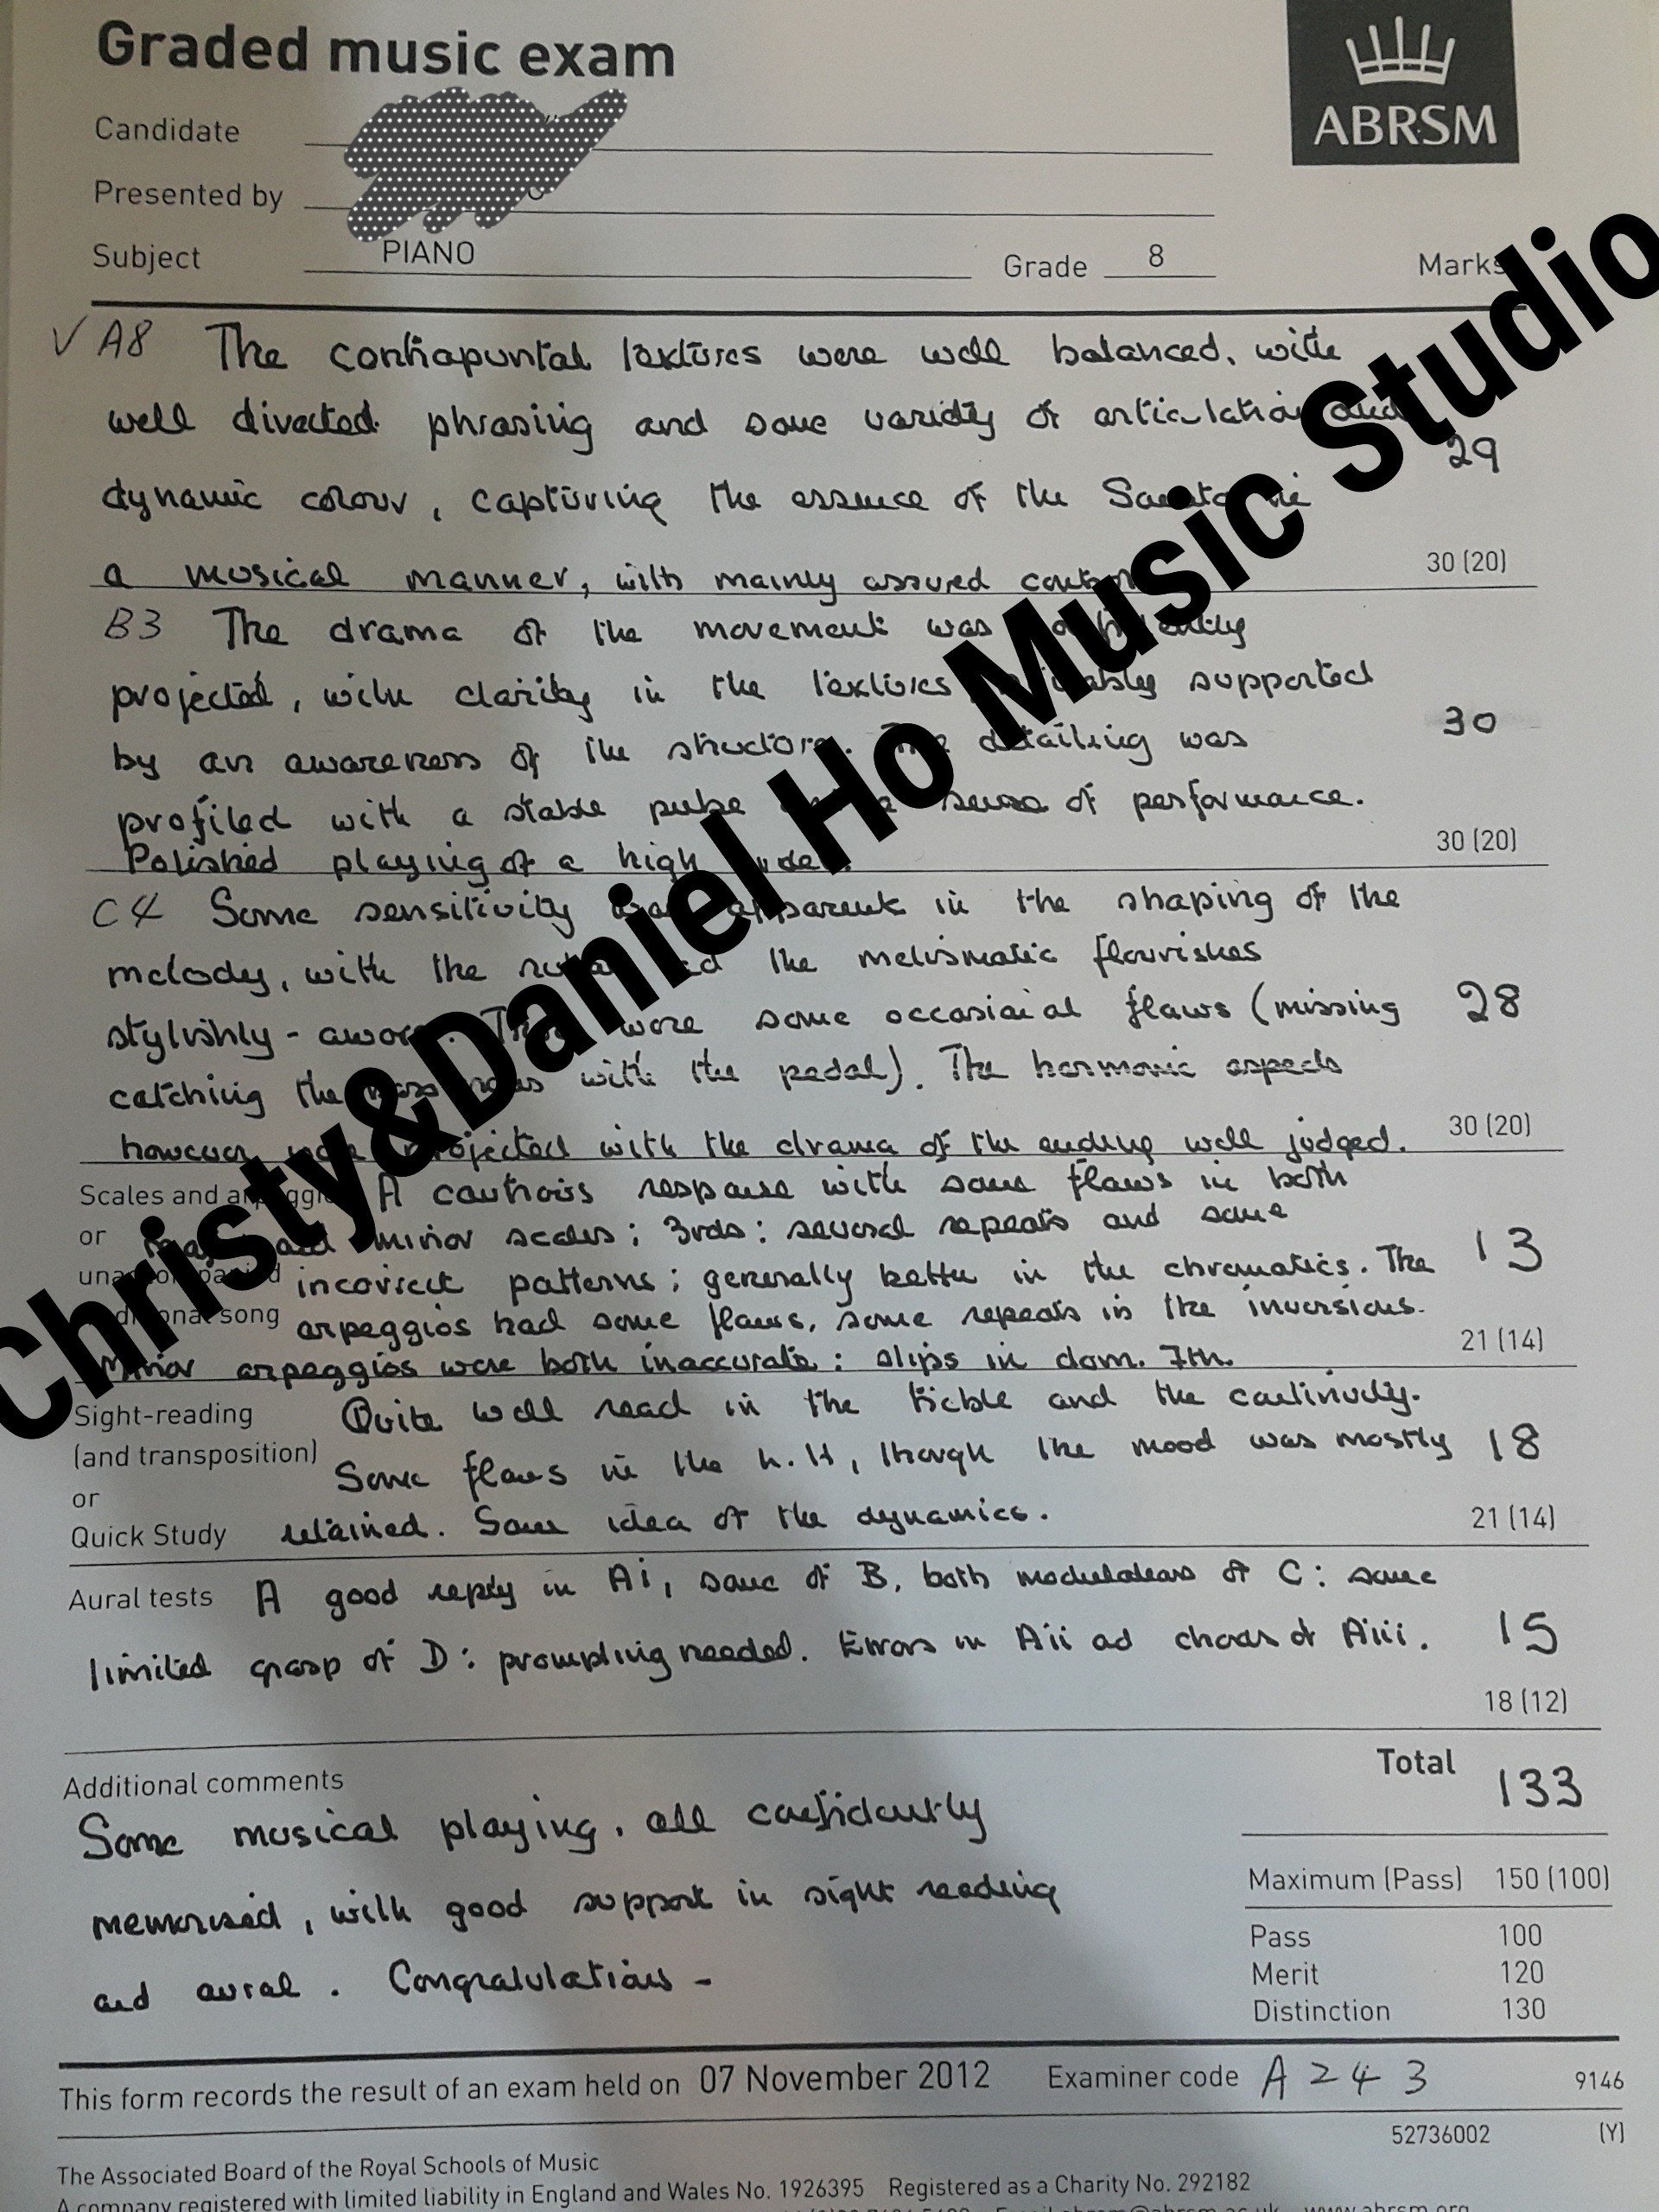 Graded music exam
ABRSM
Candidate
Presented by
Subject PIANO Grade 8 Marks
✓ A8 The contrapuntal textures were well balanced, with
well directed phrasing and some variety of articulation and
29
dynamic colour, capturing the essence of the in
a musical manner, with mainly assured control
30 (20)
B3 The drama of the movement was confidently
projected, with clarity in the textures suitably supported
by an awareness of the structure. The detailing was
30
profiled with a stable pulse and a sense of performance.
Polished playing of a high order.
30 (20)
C4 Some sensitivity was apparent in the shaping of the
melody, with the and the melismatic flourishes
stylishly-aware. There were some occasional flaws (missing
28
catching the bass notes with the pedal). The harmonic aspects
however were projected with the drama of the ending well judged.
30 (20)
Scales and arpeggios A cautious response with some flaws in both
or major and minor scales; 3rds: several repeats and some
unaccompanied incorrect patterns; generally better in the chromatics. The 13
traditional song arpeggios had some flaws, some repeats in the inversions.
Minor arpeggios were both inaccurate: slips in dom. 7th.
21 (14)
Sight-reading Quite well read in the treble and the continuity.
(and transposition) Some flaws in the h.H, though the mood was mostly 18
or
Quick Study retained. Some idea of the dynamics.
21 (14)
Aural tests A good reply in Ai, some of B, both modulations of C: some
limited grasp of D: prompting needed. Errors in Aii ad chords of Aiii. 15
18 (12)
Total 133
Additional comments
Some musical playing, all confidently
memorised, with good support in sight reading
and aural. Congratulations -
Maximum (Pass) 150 (100)
Pass 100
Merit 120
Distinction 130
This form records the result of an exam held on 07 November 2012 Examiner code A243 9146
52736002 (Y)
The Associated Board of the Royal Schools of Music
A company registered with limited liability in England and Wales No. 1926395 Registered as a Charity No. 292182
Christy&Daniel Ho Music Studio